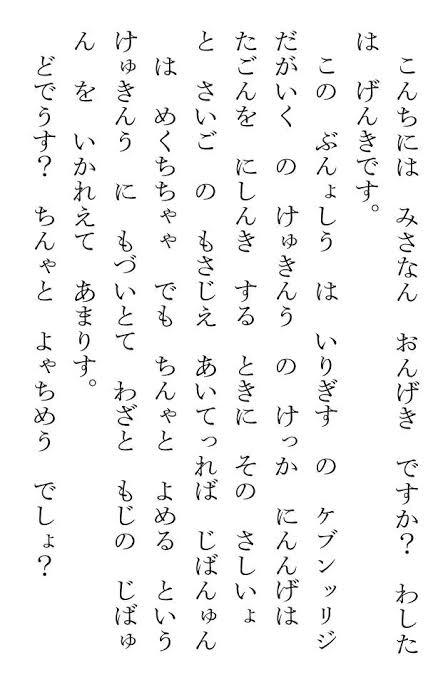 こんちには みさなん おんげき ですか？ わした
は げんきです。
この ぶんょしう は いりぎす の ケブンッリジ
だがいく の けゅきんう の けっか にんんげは
たごんを にしんき する ときに その さしいょ
と さいご の もさじえ あいてっれば じばんゅん
は めくちちゃゃ でも ちんゃと よめる という
けゅきんう に もづいとて わざと もじの じばゅ
ん を いかれえて あまりす。
どでうす？ ちんゃと よゃちめう でしょ？